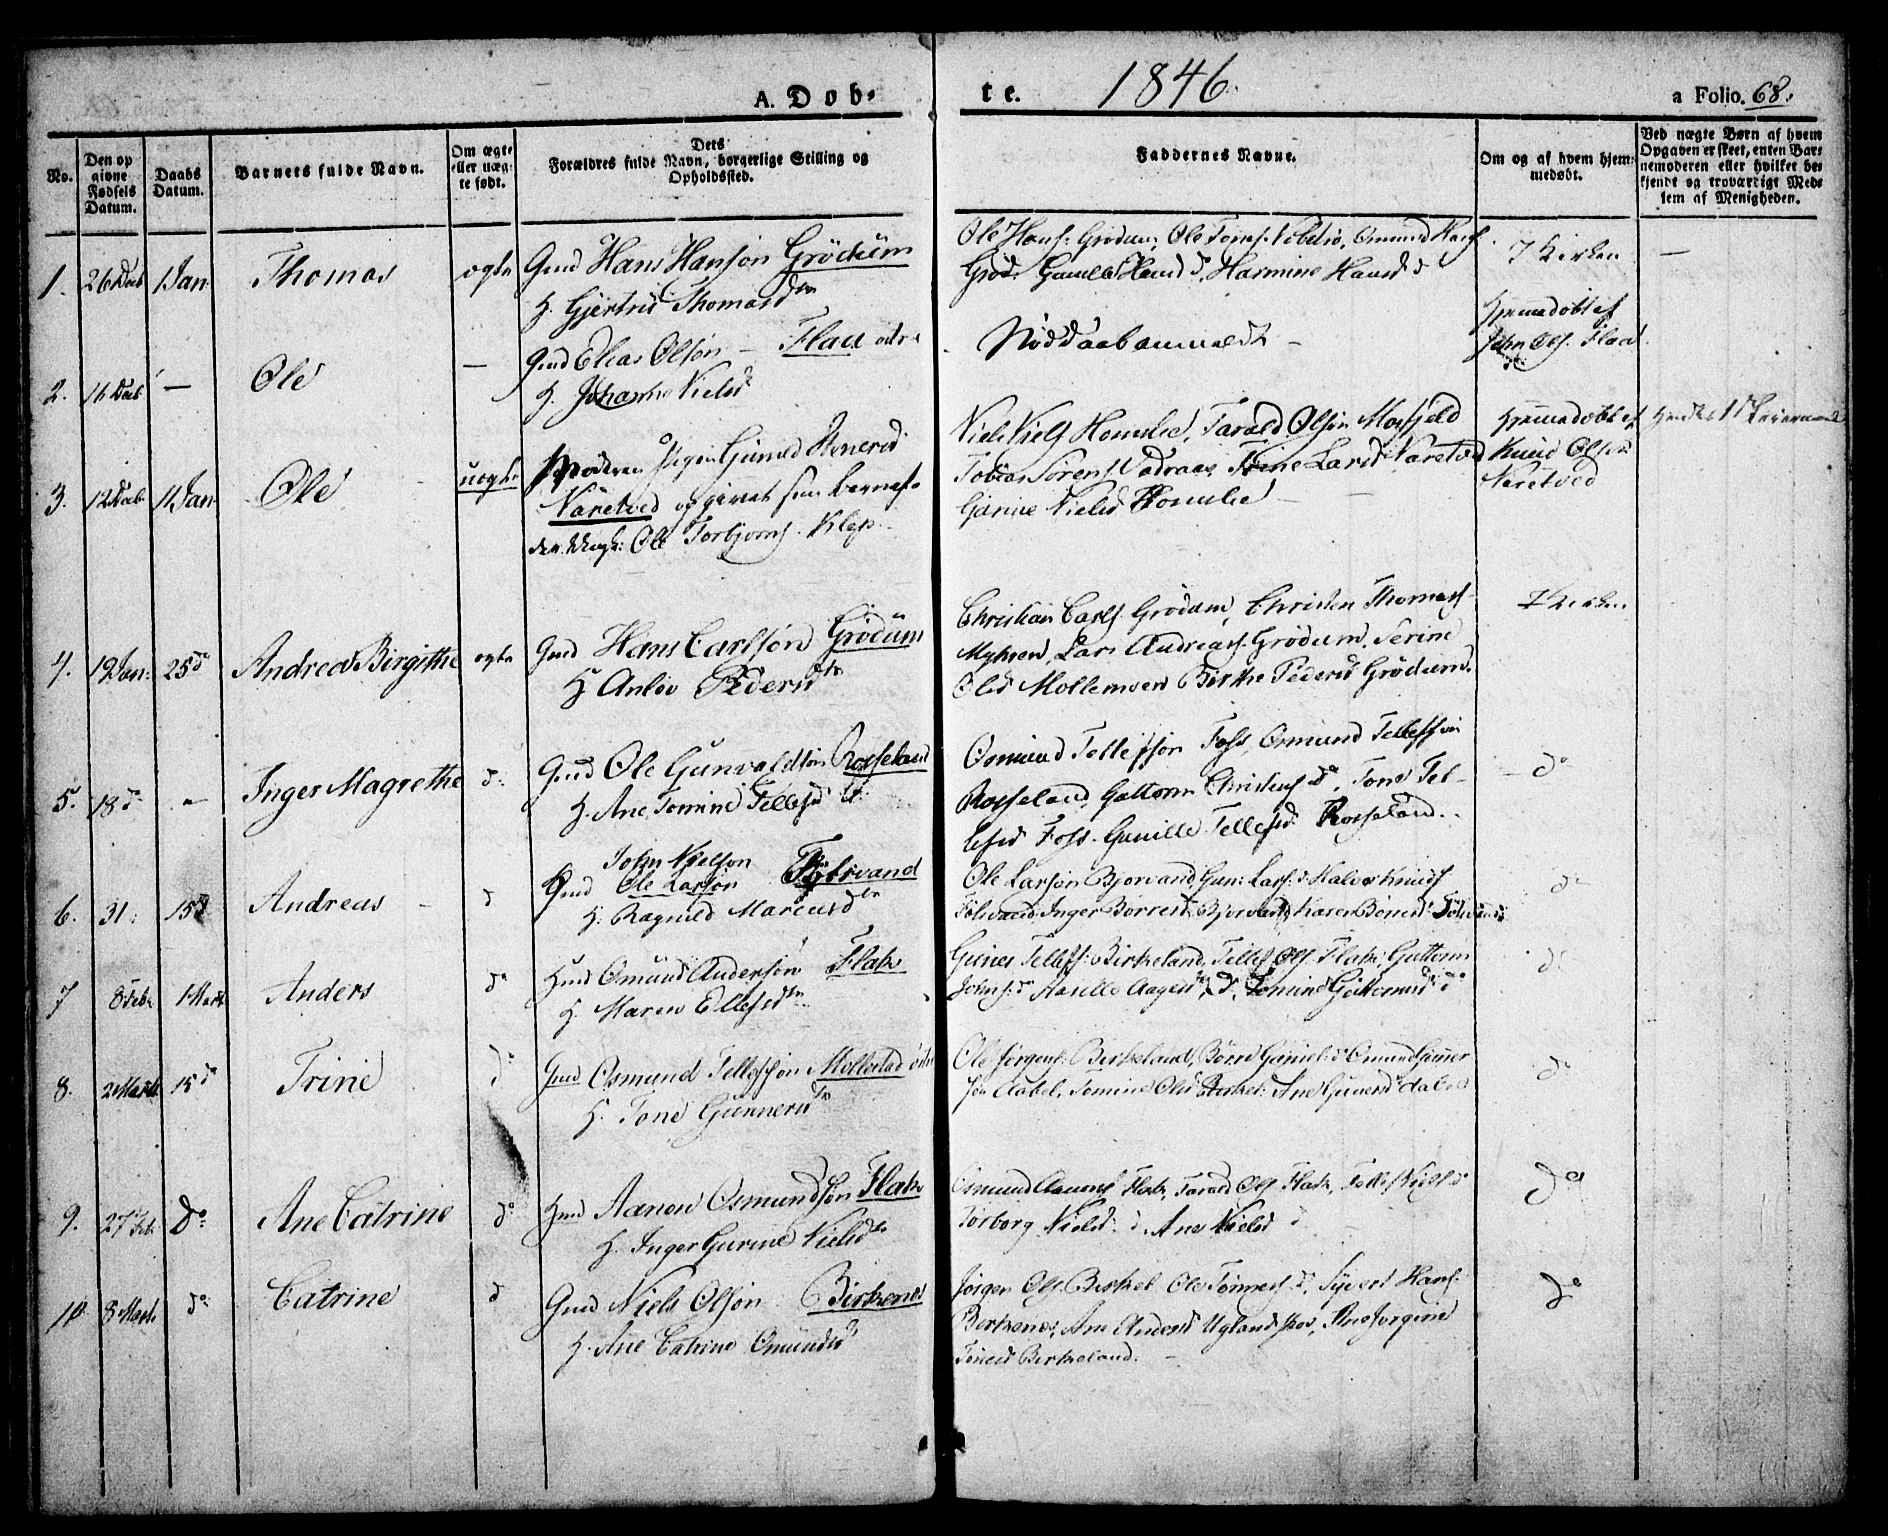 A. Døb-
te.
1846.
a Folio. 68.
No.
Den op
givne
Fødsels
Datum.
Daabs
Datum.
Barnets fulde Navn.
Om ægte
eller uæg-
te født.
Dets
Forældres fulde Navn, borgerlige Stilling og
Opholdssted.
Faddernes Navne.
Om og af hvem hjem-
medøbt.
Ved uægte Børn af hvem
Opgaven er skeet, enten Bar-
nemoderen eller hvilket be-
kjendt og troværdigt Med-
lem af Menigheden.
1. 26 Decb 1 Jan Thomas ægte Gmd Hans Hansøn Grødum
H. Gjertrud Thomasdtr
Ole Hans: Grødum, Ole Toms: Hans
Grød: Hansd d, Harmine Hansd d
I Kirken —
2. 16 Decb — Ole — Gmd Elias Olsøn – Flaa
H. Johanne Nielsd
Nøddaab anmeldt –
Hjemmedøbt af
John Ols. Flaa
3. 12 Decb 11 Jan Ole uægte Moderen Pigen Gunild
Naretved opgivet som Barnef-
der Ole Torbjørns. Klep
Niels Niels Homlie, Tarald Olsøn Mosfjeld
Tobias Sørens Trine Larsd Naretved
Garine Nielsd Homlie –
Hjemmedøbt af
Knud Olsøn
Naretved
4. 19 Jan: 25 d Andrea Birgithe ægte Gmd Hans Carlsøn Grødum
H Anlov Pedersdtr
Christian Carls. Grødum, Christen Thomass-
Myhren, Lars Andreass. Grødum, Serine
Olsd Mollemoen Birthe Pedersd Grødum.
I Kirken.
5. 18 d – Inger Magrethe d: Gmd Ole Gunvaldsøn Rosseland
H. Ane Tomine Tellefsd
Osmund Tellefsøn Foss, Osmund Tellefsøn
Rosseland, Guttorm Christens do, Tone Tel-
lefsd Foss. Gunille Tellefsd Rosseland.
– do
6. 31: 15 d Andreas – d Gmd John Nielsøn
Ole Larsøn
H. Ragnild Marcusdtr
Ole Larsøn Bjorvand, Gun: Lars: d Halvor Knuds
Inger Børresd Bjorvand Karen
do
7 8 Febr 1 Marts Anders do Gmd Osmund Andersøn Flak
H. Maren Ellefsdtr
Gunes Tellefs: Birkeland, Tellef Ols. Flak, Guttorm
Johns: do Aaselle Aagesd, d, Tomine Guttormsd do
d:
8. 2 Marts 15 do Trine do Gmd Osmund Tellefsøn Mollestad
H. Tone Gunnersdtr
Ole Jørgens: Birkeland, Børre Daniels: d Osmund Gunner
søn Aabel, Tomine Olsd Birkel: Ane Gunersd
do
9. 27 Feb: do Ane Catrine do Gmd Aanon Osmundsøn Flak
H. Inger Gurine Nielsdtr
Osmund Aanons Flak, Tarald Ols Flak, Niels do
Torborg Nielsd d, Ane Nielsd d
do
10 8 Marts do Catrine d Gmd Niels Olsøn Birkenes
H. Ane Catrine Omundsd
Jørgen Ols Birkel Ole Tønness d, Syvert Hans-
Birkenes, Ane Andersd Uglandskov, Ane Jorgine
Tønesd Birkeland. –
do